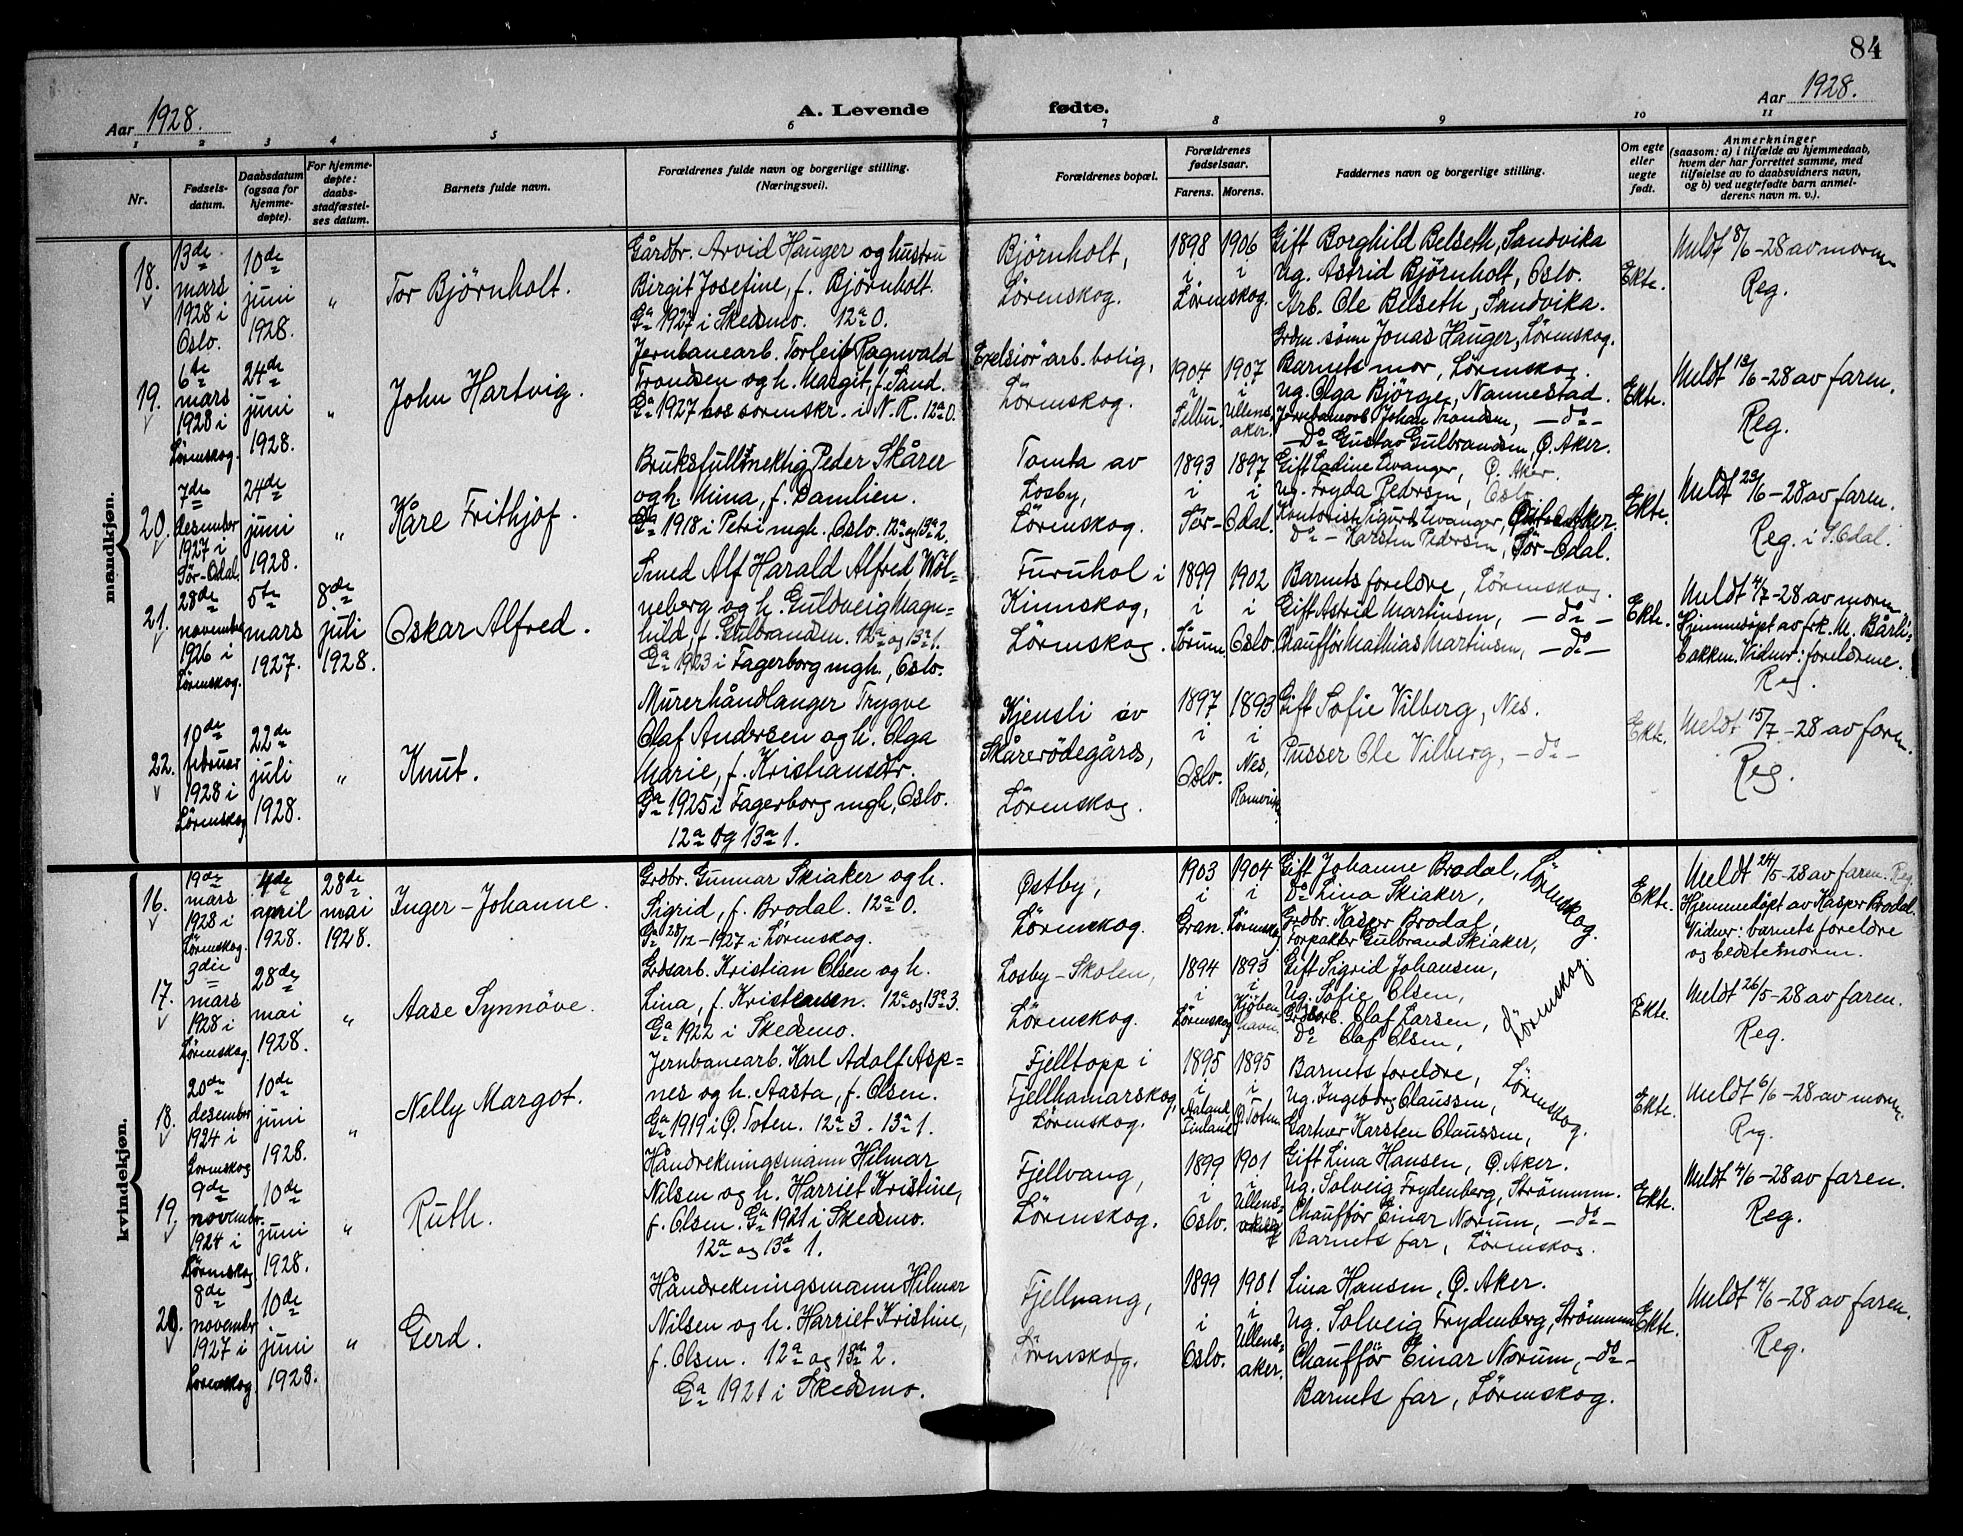 84
Aar 1928.
A. Levende fødte.
Aar 1928.
1 2 3 4 5 6 7 8 9 10 11
Nr.
Fødsels-
datum.
Daabsdatum
(ogsaa for
hjemme-
døpte).
For hjemme-
døpte:
daabs-
stadfæstel-
ses datum.
Barnets fulde navn.
Forældrenes fulde navn og borgerlige stilling.
(Næringsvei).
Forældrenes bopæl.
Forældrenes
fødselsaar.
Farens. Morens.
Faddernes navn og borgerlige stilling.
Om egte
eller
uegte
født.
Anmerkninger
(saasom: a) i tilfælde av hjemmedaab,
hvem der har forrettet samme, med
tilføielse av to daabsvidners navn,
og b) ved uegtefødte barn anmel-
derens navn m. v.).
mandkjøn.
18.
13de
mars
1928 i
Oslo.
10de
juni
1928.
"
Tor Björnholt.
Gårdbr. Arvid Hauger og hustru
Birgit Josefine, f. Björnholt.
Ga 1927 i Skedsmo. 12a 0.
Björnholt,
Lörenskog.
1898
i
Lörenskog.
1906
i
Gift Borghild Belseth, Sandvika
Ug. Astrid Björnholt, Oslo.
Arb. Ole Belseth, Sandvika.
Grdm. sönn Jonas Hauger, Lörenskog.
Ekte.
Meldt 8/6-28 av moren
Reg.
19.
6te
mars
1928 i
Lörenskog.
24de
juni
1928.
"
John Hartvig.
Jernbanearb. Torleif Ragnvald
Trondsen og h. Margit, f. Sand.
Ga 1927 hos sorenskr. i N. R. 12a 0.
"Exelsior" arb. bolig,
Lörenskog.
1904
i
Selbu.
1907
i
Ullens-
aker.
Barnets mor, Lörenskog.
Ug. Olga Björge, Nannestad.
Jernbanearb. Johan Trondsen, -do-
-Do- Gustav Gulbrandsen, Ö. Aker.
Ekte.
Meldt 12/6-28 av faren.
Reg.
20.
7de
desember
1927 i
Sör-Odal.
24de
juni
1928.
"
Kåre Frithjof.
Bruksfullmektig Peder Skårer
og h. Mina, f. Damlien.
Ga 1918 i Petri mgh. Oslo. 12a og 13a 2.
Tomta av
Losby,
Lörenskog.
1893
i
Sör-
1897
i
Odal.
Gift Ladine Levanger, Ö. Aker.
Ug. Fryda Pedersen, Oslo.
Kontorist Sigurd Levanger, Ö. Aker.
Do - Karsten Pedersen, Sör-Odal.
Ekte.
Meldt 29/6-28 av faren.
Reg. i S. Odal.
21.
28de
november
1926 i
Lörenskog.
5te
mars
1927.
8de
juli
1928.
Oskar Alfred.
Smed Alf Harald Alfred Wöl-
neberg og h. Guldveig Magn-
hild, f. Gulbrandsen. 12a og 13a 1.
Ga 1923 i Fagerborg mgh., Oslo.
Furuhol i
Kinnskog,
Lörenskog.
1899
i
Sörum.
1902
i
Oslo.
Barnets foreldre, Lörenskog.
Gift Astrid Martinsen, -do-
Chaufför Mathias Martinsen, -do-
Ekte.
Meldt 4/7-28 av moren
Hjemmedöpt av frk. M. Bårli-
bakken. Vidner: foreldrene.
Reg.
22.
10de
februar
1928 i
Lörenskog
22de
juli
1928.
"
Knut.
Murerhåndlanger Trygve
Olaf Andersen og h. Olga
Marie, f. Kristiansdtr.
Ga 1925 i Fagerborg mgh, Oslo.
12a og 13a 1.
Kjensli av
Skårerödegård,
Lörenskog.
1897
i
Oslo.
1893
i
Nes,
Romerike
Gift Sofie Vilberg, Nes.
Pusser Ole Vilberg, -do-
Ekte.
Meldt 15/7-28 av faren.
Reg.
kvindekjøn.
16.
19de
mars
1928 i
Lörenskog.
4de
april
1928.
28de
mai
1928.
Inger-Johanne.
Grdbr. Gunnar Skiaker og h.
Sigrid, f. Brodal. 12a 0.
Ga 28/12-1927 i Lörenskog.
Østby,
Lörenskog.
1903
i
Gran.
1904
i
Lörenskog
Gift Johanne Brodal,
Do Lina Skiaker,
Grdbr. Kasper Brodal,
Forpakter Gulbrand Skiaker,
Lörenskog.
Ekte.
Meldt 24/5-28 av faren. Reg
Hjemmedöpt av Kasper Brodal.
Vidner: barnets foreldre
og bedstemoren.
17.
3die
mars
1928 i
Lörenskog.
28de
mai
1928.
"
Aase Synnöve.
Grdsarb. Kristian Olsen og h.
Lina, f. Kristensen. 12a og 13a 3.
Ga 1922 i Skedsmo.
Losby-Skolen,
Lörenskog.
1894
i
Lörenskog
1893
i
Kjöben-
havn.
Gift Sigrid Johansen,
Ug. Sofie Olsen,
Grdsarb. Olaf Larsen,
Do Olaf Olsen,
Lörenskog.
Ekte.
Meldt 26/5-28 av faren.
Reg.
18.
20de
desember
1924 i
Lörenskog
10de
juni
1928.
"
Nelly Margot.
Jernbanearb. Karl Adolf Asp-
nes og h. Aasta, f. Olsen.
Ga 1919 i Ö. Toten. 12a 3. 13a 1.
Fjelltopp i
Fjellhamarskog,
Lörenskog.
1895
i
Åland
Finland
1895
i
Ö. Toten
Barnets foreldre,
Ug. Ingeborg Claussen,
Gartner Karsten Claussen,
Lörenskog.
Ekte.
Meldt 6/6-28 av moren.
Reg.
19.
9de
novembr.
1924 i
Lörenskog
10de
juni
1928.
"
Ruth.
Håndrekningsmann Hilmar
Nilsen og h. Harriet Kristine,
f. Olsen. Ga 1921 i Skedsmo.
12a og 13a 1.
Fjellvang,
Lörenskog.
1899
i
Oslo.
1901
i
Ullens-
aker
Gift Lina Hansen, Ö. Aker.
Ug. Solveig Frydenberg, Strömmen.
Chaufför Einar Norum, -do-
Barnets far, Lörenskog.
Ekte.
Meldt 4/6-28 av faren.
Reg.
20.
8de
november
1927 i
Lörenskog
10de
juni
1928.
"
Gerd.
Håndrekningsmann Hilmar
Nilsen og h. Harriet Kristine,
f. Olsen. 12a og 13a 2.
Ga 1921 i Skedsmo.
Fjellvang,
Lörenskog.
1899
i
Oslo.
1901
i
Ullens-
aker.
Lina Hansen, Ö. Aker.
Ug. Solveig Frydenberg, Strömmen
Chaufför Einar Norum, -do-
Barnets far, Lörenskog.
Ekte.
Meldt 4/6-28 av faren.
Reg.